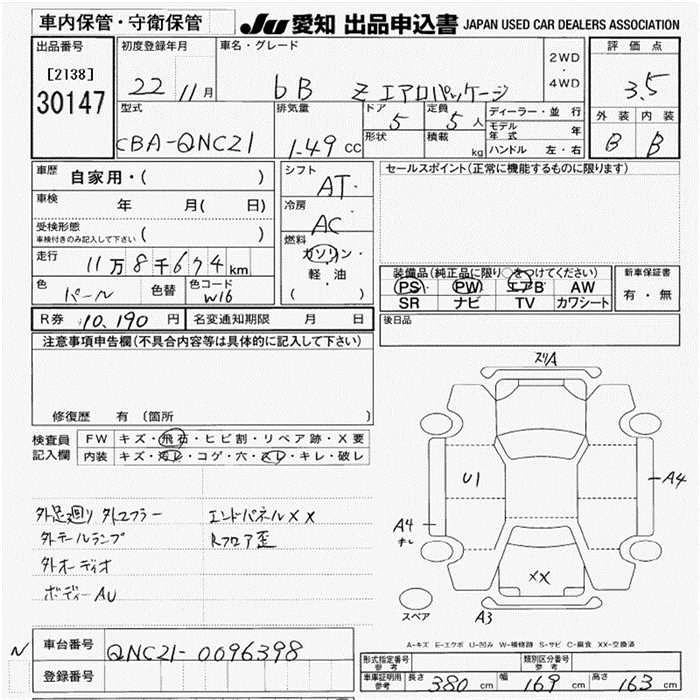 車内保管・守衛保管 JU 愛知 出品申込書 JAPAN USED CAR DEALERS ASSOCIATION
出品番号 [2138] 30147
初度登録年月 22 11月
車名・グレード bB Z エアロパッケージ 2WD・4WD
評価点 3.5
外装 B 内装 B
型式 CBA-QNC21 排気量 1.49 CC ドア 5 形状 定員 5人 積載 kg
ディーラー・並行
モデル年式 年
ハンドル 左・右
車歴 自家用・( )
車検 年 月( 日)
受検形態 車検付きのみ記入して下さい ( )
走行 11万8千674km
色 パール 色替 色コード W16
シフト AT
冷房 AC
燃料 ガソリン・軽油 ( )
セールスポイント(正常に機能するものに限ります)
装備品(純正品に限り○をつけてください)
PS PW エアB AW
SR ナビ TV カワシート
新車保証書 有・無
R券 10,190 円 名変通知期限 月 日
後日品
注意事項申告欄(不具合内容等は具体的に記入して下さい)
修復歴 有(箇所 )
検査員記入欄
FW キズ・飛石・ヒビ割・リペア跡・X要
内装 キズ・汚レ・コゲ・穴・スレ・キレ・破レ
外足廻り 外マフラー エンドパネルXX
外テールランプ Rフロア歪
外オーディオ
ボディーAU
スリA
U1
A4
A4
XX
A3
スペア
A-キズ E-エクボ U-凹み W-補修跡 S-サビ C-腐食 XX-交換済
N 車台番号 QNC21-0096398
登録番号
形式指定番号 参考 類別区分番号 参考
車庫証明用 参考 長さ 380 cm 幅 169 cm 高さ 163 cm